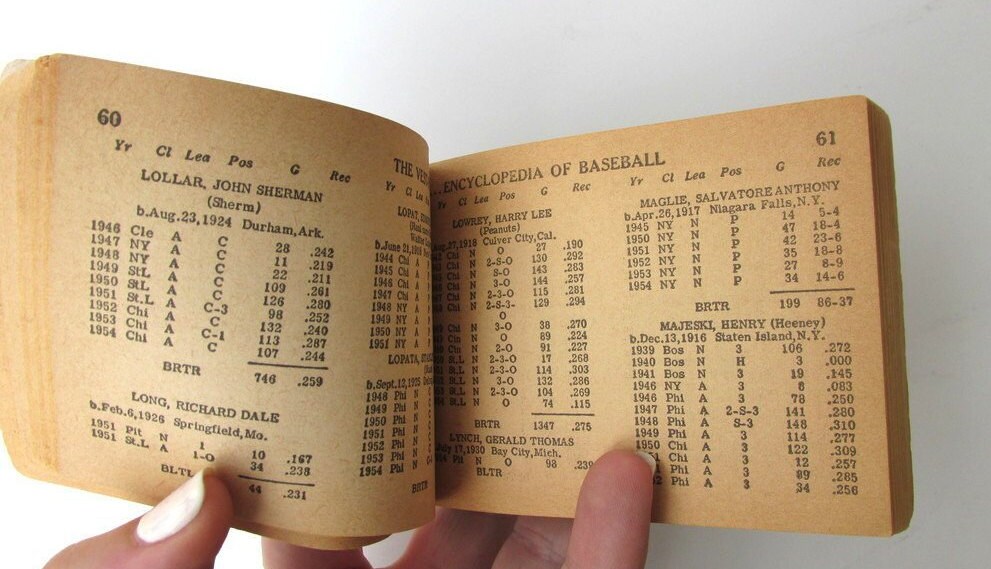 60
Yr Cl Lea Pos G Rec
LOLLAR, JOHN SHERMAN
(Sherm)
b.Aug.23,1924 Durham,Ark.
1946 Cle A C 28 .242
1947 NY A C 11 .219
1948 NY A C 22 .211
1949 StL A C 109 .261
1950 StL A C 126 .280
1951 St.L A C-3 98 .252
1952 Chi A C 132 .240
1953 Chi A C-1 113 .287
1954 Chi A C 107 .244
BRTR 746 .259
LONG, RICHARD DALE
b.Feb.6,1926 Springfield,Mo.
1951 Pit N 1 10 .167
1951 St.L A 1-O 34 .238
BLTL 44 .231
THE
Yr Cl Lea
LOPAT,
b.June
1944 Chi A
1945 Chi A
1946 Chi A
1947 Chi A
1948 NY A
1949 NY A
1950 NY A
1951 NY A
LOPATA,
b.Sept.12,1925
1948 Phi N
1949 Phi N
1950 Phi N
1951 Phi N
1952 Phi N
1953 Phi N
1954 Phi N
BRTR
ENCYCLOPEDIA OF BASEBALL
61
Yr Cl Lea Pos G Rec
LOWREY, HARRY LEE
(Peanuts)
1918 Culver City,Cal.
Chi N O 27 .190
Chi N 2-S-O 130 .292
Chi N S-O 143 .283
Chi N 3-O 144 .257
Chi N 2-3-O 115 .281
Chi N 2-S-3- 129 .294
O
Chi N 3-O 38 .270
Cin N O 89 .224
Cin N 2-O 91 .227
St.L N 2-3-O 17 .268
St.L N 2-3-O 114 .303
St.L N 3-O 132 .286
St.L N 2-3-O 104 .269
St.L N O 74 .115
BRTR 1347 .275
LYNCH, GERALD THOMAS
July 17,1930 Bay City,Mich.
Pit N O 98
BLTR
Yr Cl Lea Pos G Rec
MAGLIE, SALVATORE ANTHONY
b.Apr.26,1917 Niagara Falls,N.Y.
1945 NY N P 14 5-4
1950 NY N P 47 18-4
1951 NY N P 42 23-6
1952 NY N P 35 18-8
1953 NY N P 27 8-9
1954 NY N P 34 14-6
BRTR 199 86-37
MAJESKI, HENRY (Heeney)
b.Dec.13,1916 Staten Island,N.Y.
1939 Bos N 3 106 .272
1940 Bos N H 3 .000
1941 Bos N 3 19 .145
1946 NY A 3 8 .083
1946 Phi A 3 78 .250
1947 Phi A 2-S-3 141 .280
1948 Phi A S-3 148 .310
1949 Phi A 3 114 .277
1950 Chi A 3 122 .309
Chi A 3 12 .257
Phi A 3 89 .285
Phi A 3 34 .256